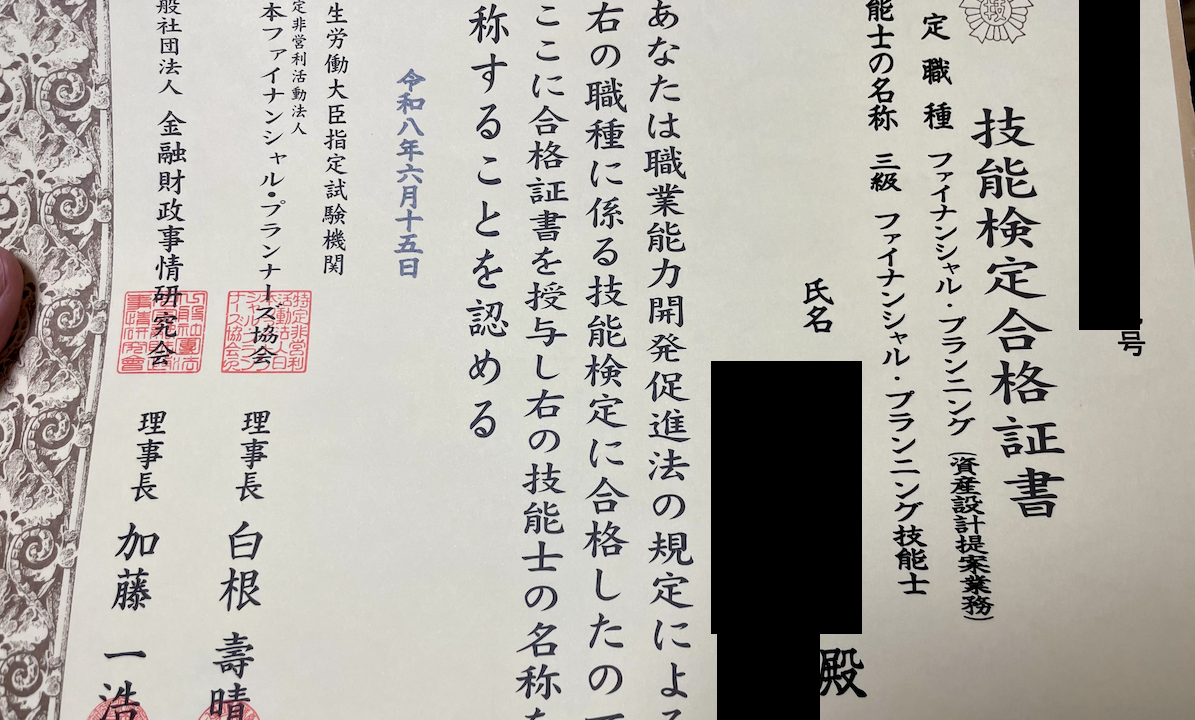 号
技能検定合格証書
定職種 ファイナンシャル・プランニング(資産設計提案業務)
能士の名称 三級 ファイナンシャル・プランニング技能士
氏名
殿
あなたは職業能力開発促進法の規定によ
右の職種に係る技能検定に合格したの
ここに合格証書を授与し右の技能士の名称
称することを認める
令和八年六月十五日
生労働大臣指定試験機関
定非営利活動法人
本ファイナンシャル・プランナーズ協会
理事長 白根 壽晴
般社団法人 金融財政事情研究会
理事長 加藤 一浩